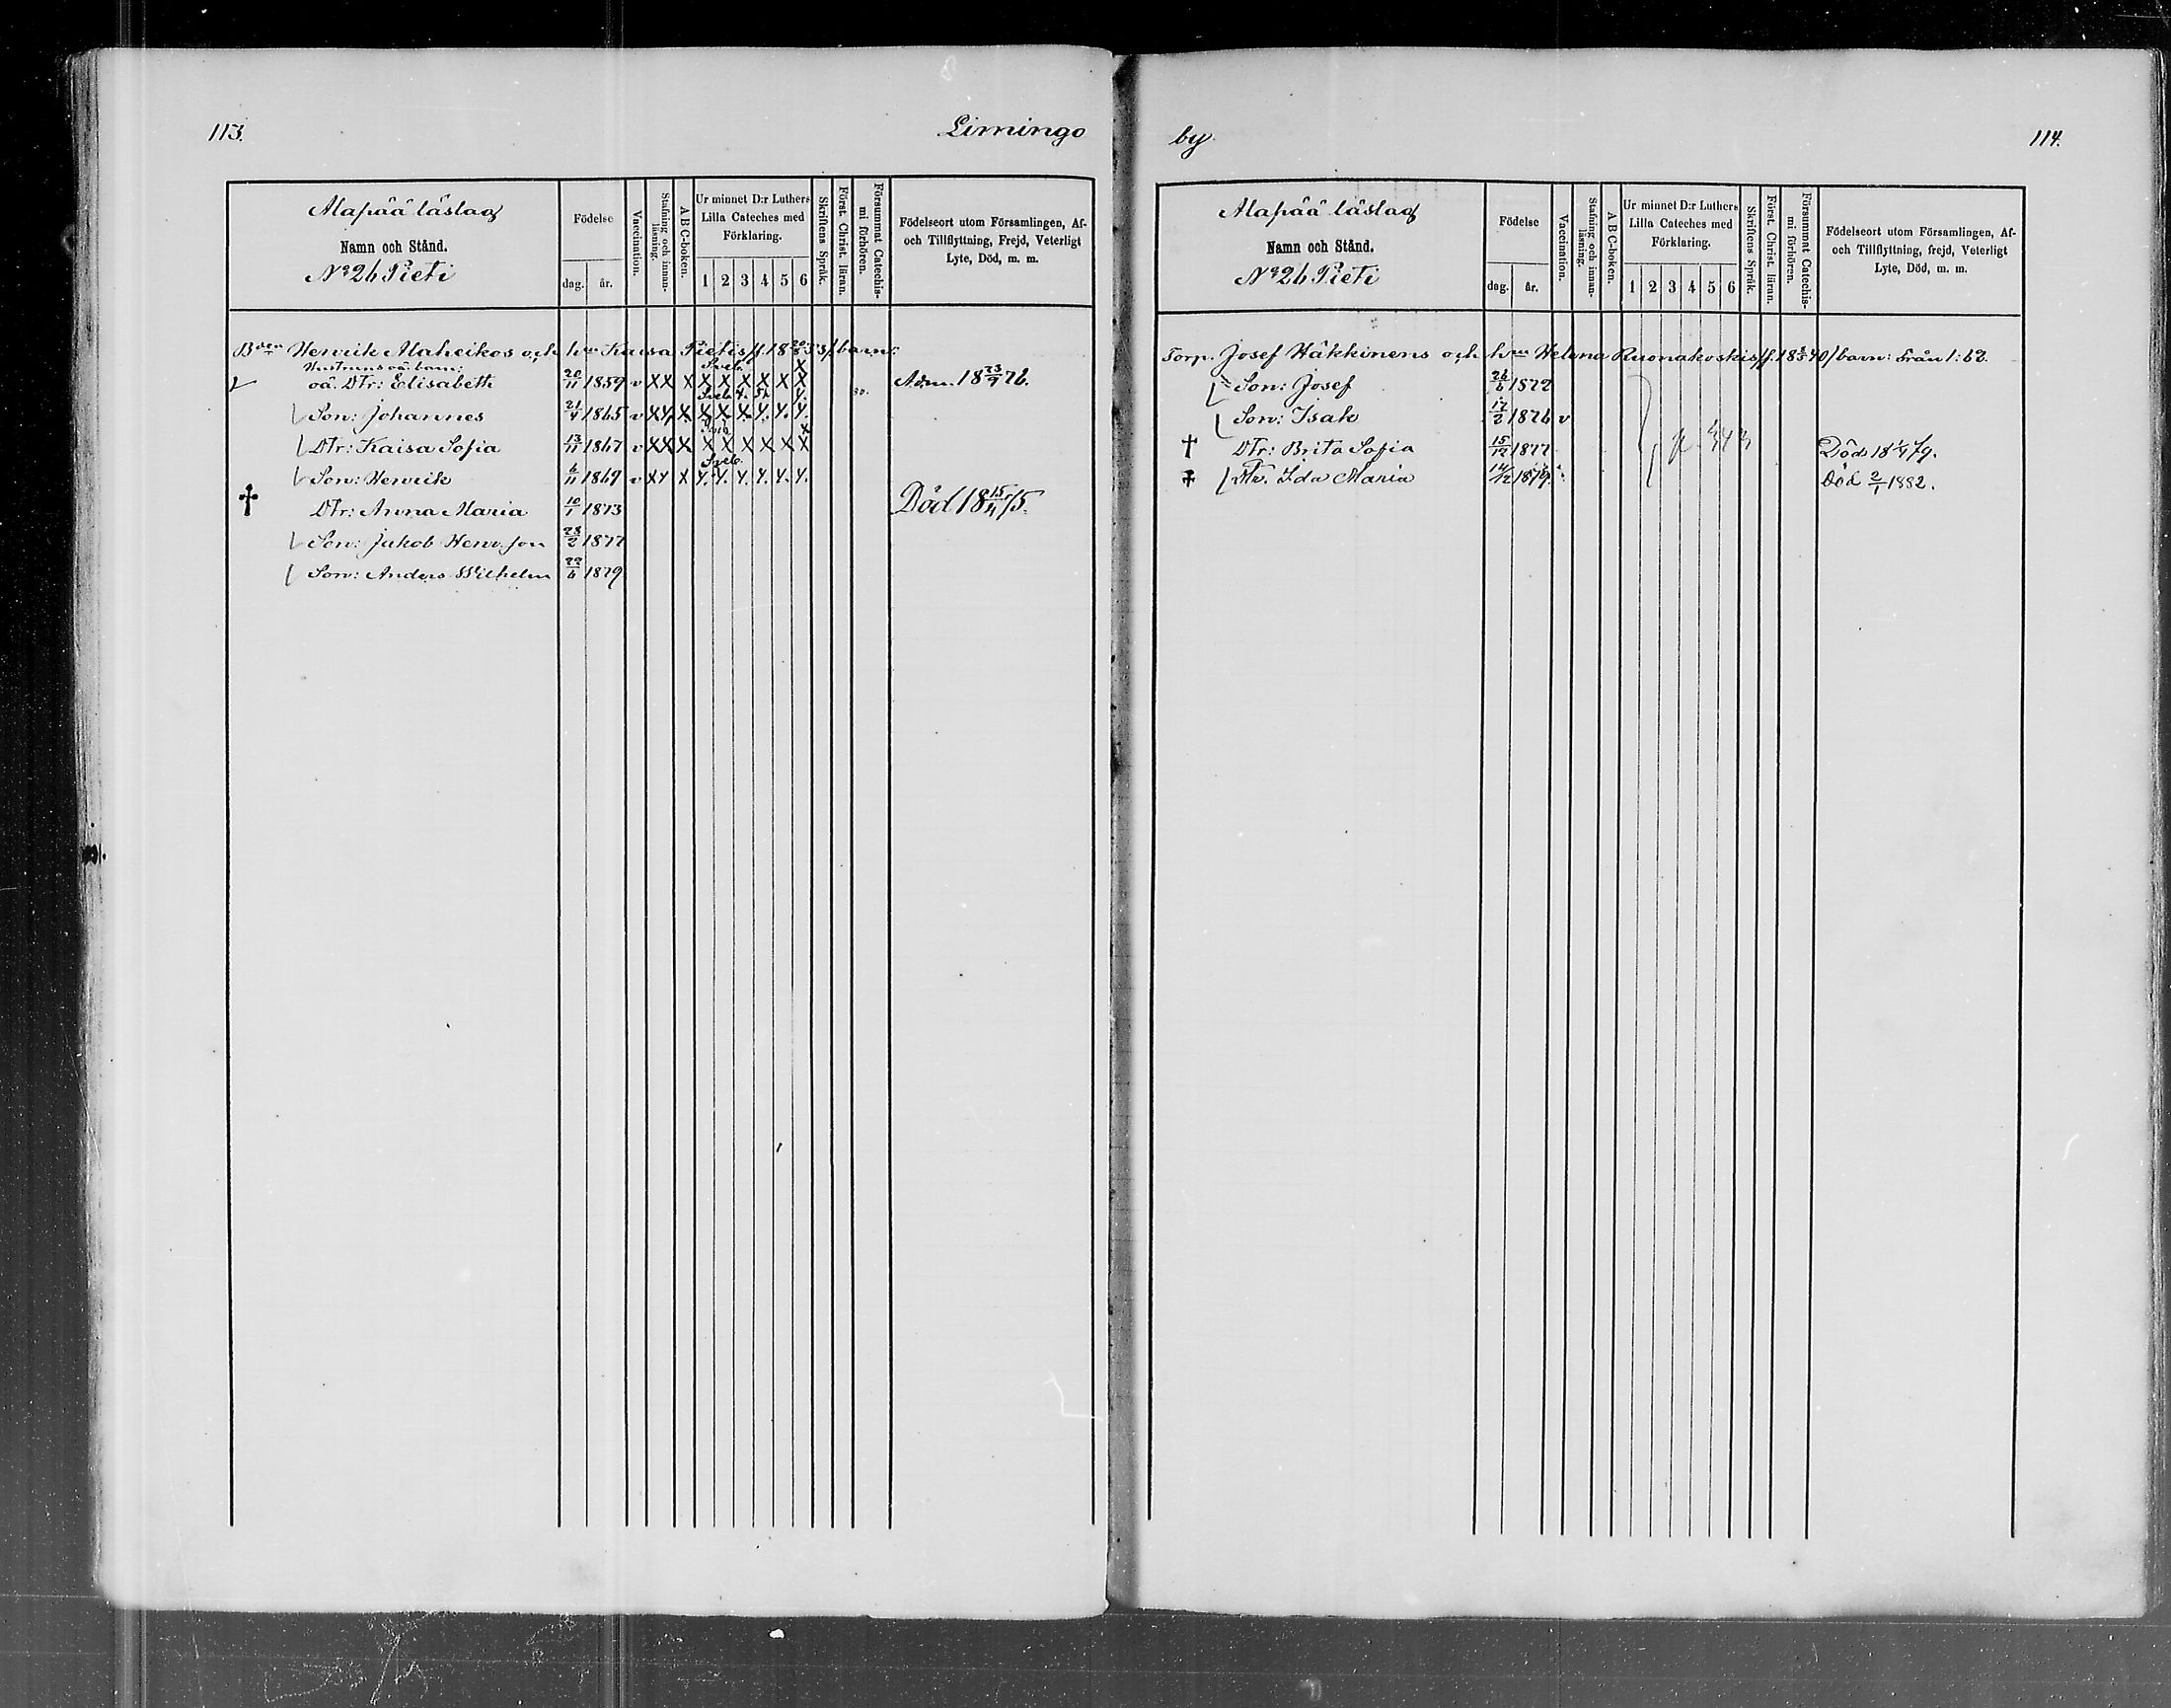 113.
Limingo
Alapää läslag
Namn och Stånd.
No 26 Pieti
Födelse
dag. år.
Vaccination.
Stafning och innanläsning.
A B C-boken.
Ur minnet D:r Luthers Lilla Cateches med Förklaring.
1 2 3 4 5 6
Skriftens Språk.
Först. Christ. läran.
Försummat Catechismi förhören.
Födelseort utom Församlingen, Af- och Tillflyttning, Frejd, Veterligt Lyte, Död, m. m.
Bden Henrik Maheikos och hu Kaisa Pietis /f. 18 20/8 33/ barn:
Hustruns oä. barn: Sveb. X
oä. Dtr: Elisabeth 20/11 1859 v X X X X X X X X X Adm. 18 23/9 76.
Son: Johannes 21/4 1865 v X 4. X X X X. 4. 4. 4.
Dtr: Kaisa Sofia 13/11 1867 v X X X X X X X X X
Sveb.
Son: Henrik 6/11 1869 v X 4 X 4. 4. 4. 4. 4. 4.
Dtr: Anna Maria 10/1 1873 Död 18 15/4 75.
Son: Jakob Henr. son 28/2 1877
Son: Anders Wilhelm 22/6 1879
by.
114.
Alapää läslag
Namn och Stånd.
No 26 Pieti
Födelse
dag. år.
Vaccination.
Stafning och innanläsning.
A B C-boken.
Ur minnet D:r Luthers Lilla Cateches med Förklaring.
1 2 3 4 5 6
Skriftens Språk.
Först. Christ. läran.
Försummat Catechismi förhören.
Födelseort utom Församlingen, Af- och Tillflyttning, frejd, Veterligt Lyte, Död, m. m.
Torp. Josef Häkkinens och hun Helena Ruonakoskis /f. 18 40/ barn: Från 1:62.
Son: Josef 26/6 1872
Son: Isak 17/2 1876 v
Dtr: Brita Sofia 15/12 1877 Död 18 1/4 79.
Dtr. Ida Maria 14/12 1879. Död 2/1 1882.